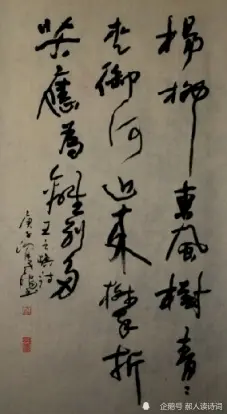 楊柳東風樹青〻
夾御河近來攀折
苦應為離別多
王之煥詩
企鹅号 郝人读诗词